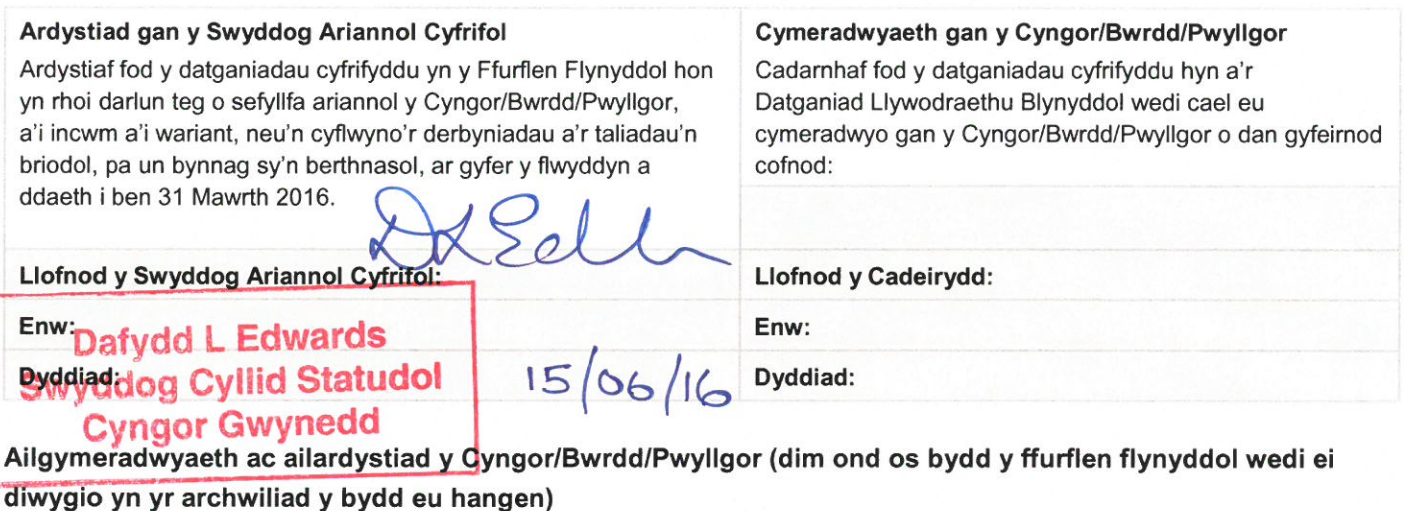 Ardystiad gan y Swyddog Ariannol Cyfrifol
Ardystiaf fod y datganiadau cyfrifyddu yn y Ffurflen Flynyddol hon
yn rhoi darlun teg o sefyllfa ariannol y Cyngor/Bwrdd/Pwyllgor,
a'i incwm a'i wariant, neu'n cyflwyno'r derbyniadau a'r taliadau'n
briodol, pa un bynnag sy'n berthnasol, ar gyfer y flwyddyn a
ddaeth i ben 31 Mawrth 2016.
Llofnod y Swyddog Ariannol Cyfrifol:
Enw:
Dafydd L Edwards
Dyddiad:
Swyddog Cyllid Statudol
15/06/16
Cyngor Gwynedd
Cymeradwyaeth gan y Cyngor/Bwrdd/Pwyllgor
Cadarnhaf fod y datganiadau cyfrifyddu hyn a'r
Datganiad Llywodraethu Blynyddol wedi cael eu
cymeradwyo gan y Cyngor/Bwrdd/Pwyllgor o dan gyfeirnod
cofnod:
Llofnod y Cadeirydd:
Enw:
Dyddiad:
Ailgymeradwyaeth ac ailardystiad y Cyngor/Bwrdd/Pwyllgor (dim ond os bydd y ffurflen flynyddol wedi ei
diwygio yn yr archwiliad y bydd eu hangen)